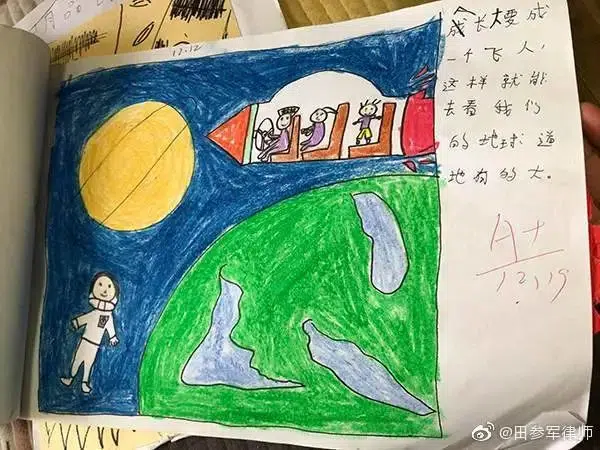 12.12
我长大要成
一个飞人,
这样就能
去看我们
的地球道
地有的大。
A+
12.19
@田参军律师